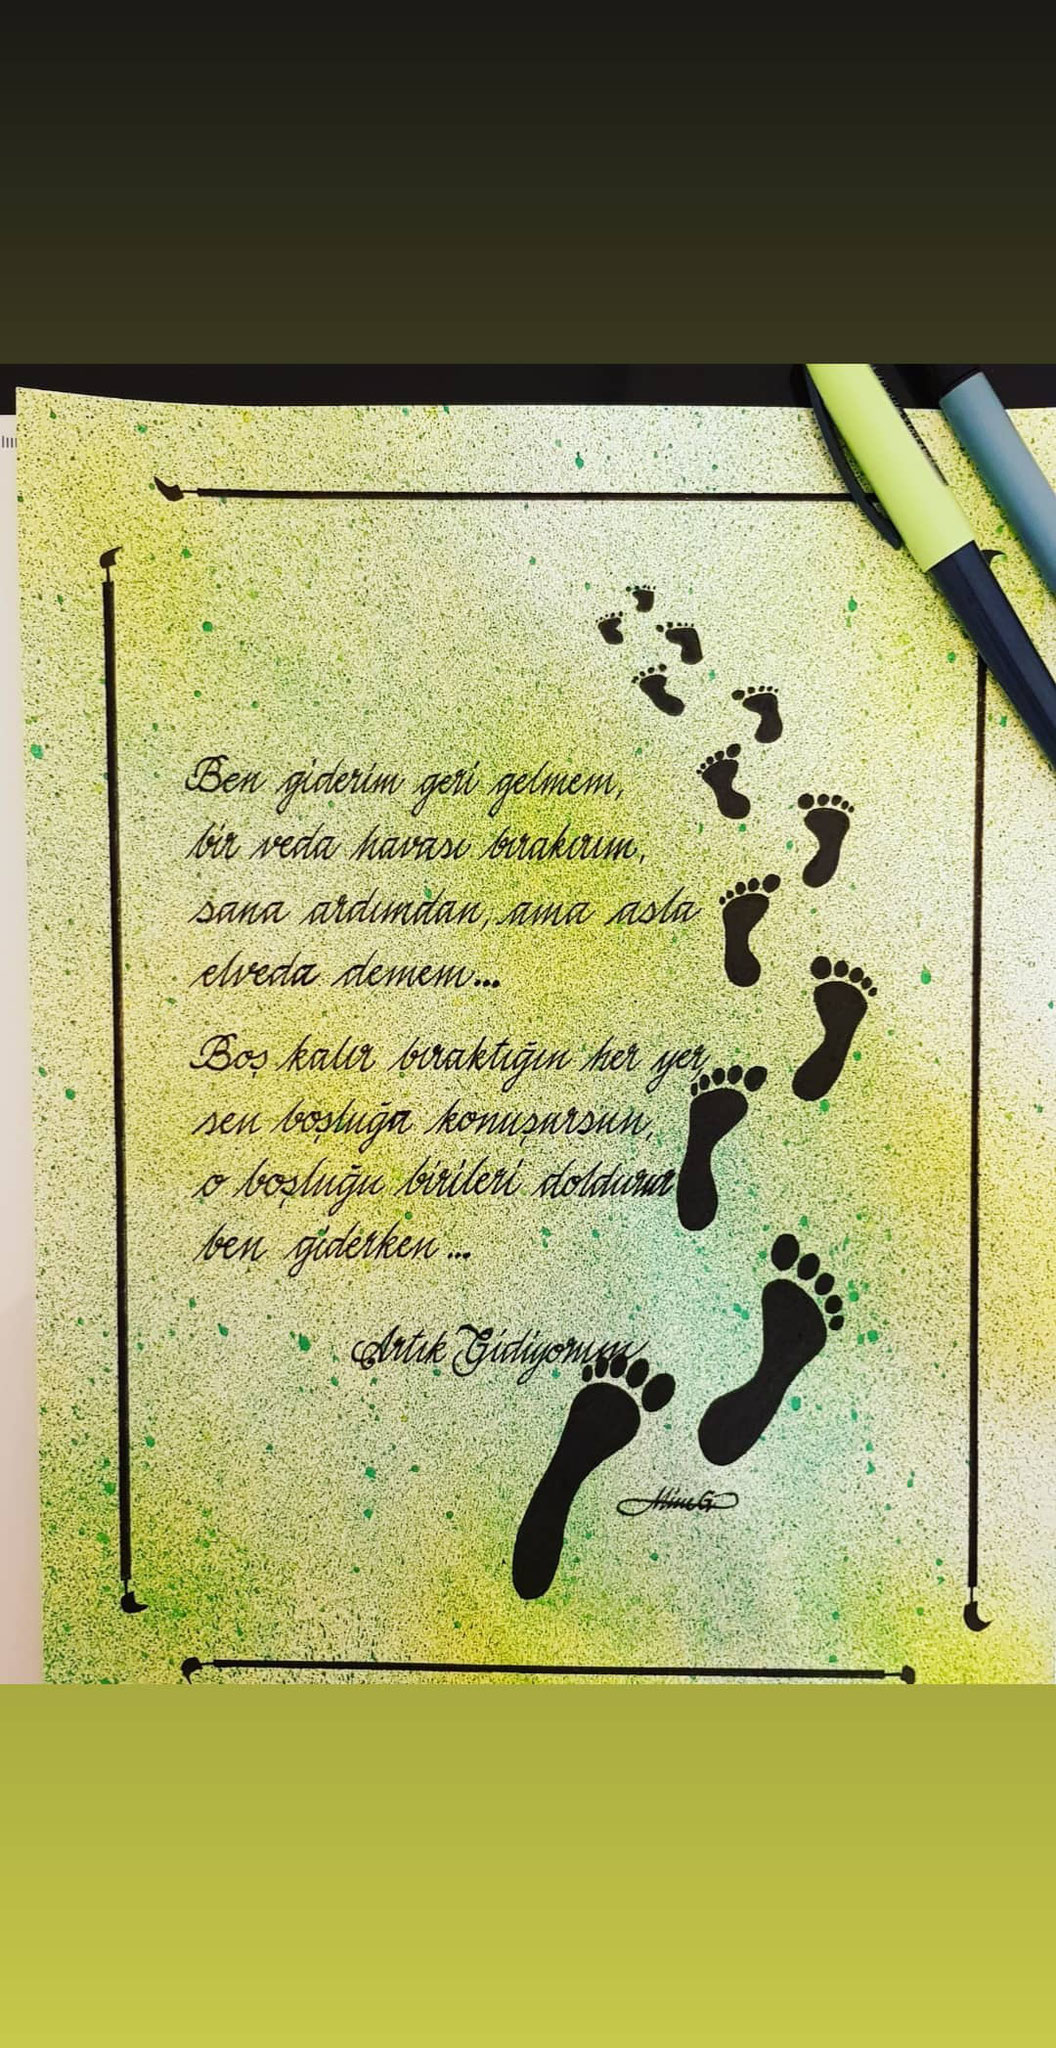 Ben giderim geri gelmem,
bir veda havası bırakırım,
sana ardımdan, ama asla
elveda demem...
Boş kalır bıraktığın her yer,
sen boşluğa konuşursun,
o boşluğu birileri doldurur
ben giderken...
Artık Gidiyorum
MimG